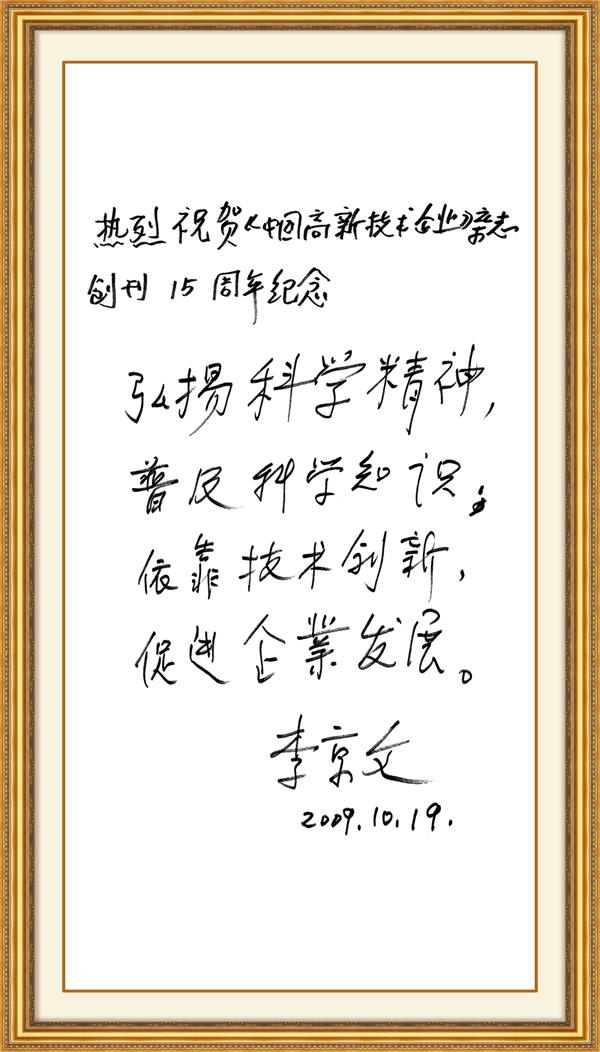 热烈祝贺《中国高新技术企业》杂志
创刊 15 周年纪念
弘揚科学精神,
普及科学知识;
依靠技术创新,
促进企業发展。
李京文
2009.10.19.